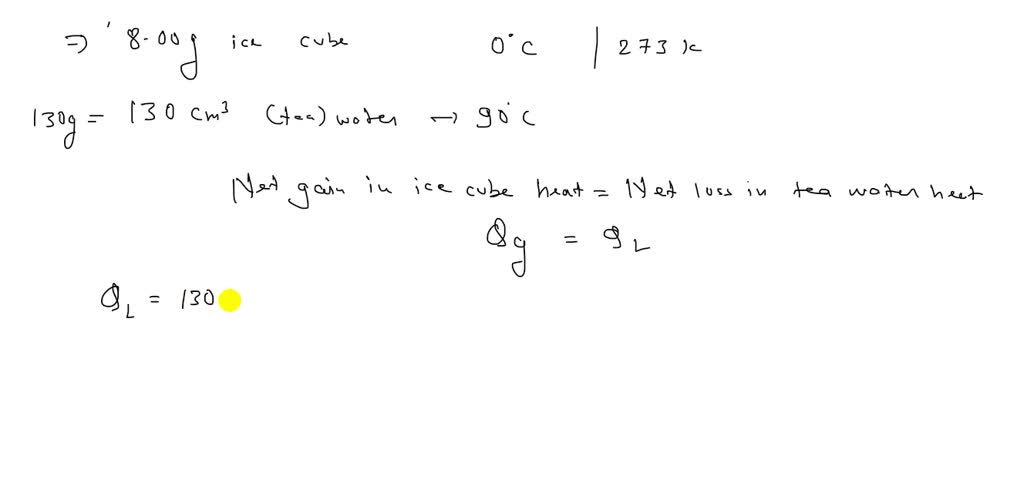 ⇒ 8.00g ice cube 0°C | 273 K
130g = 130 cm³ (tea) water → 90°C
Net gain in ice cube heat = Net loss in tea water heat
Qg = QL
QL = 130